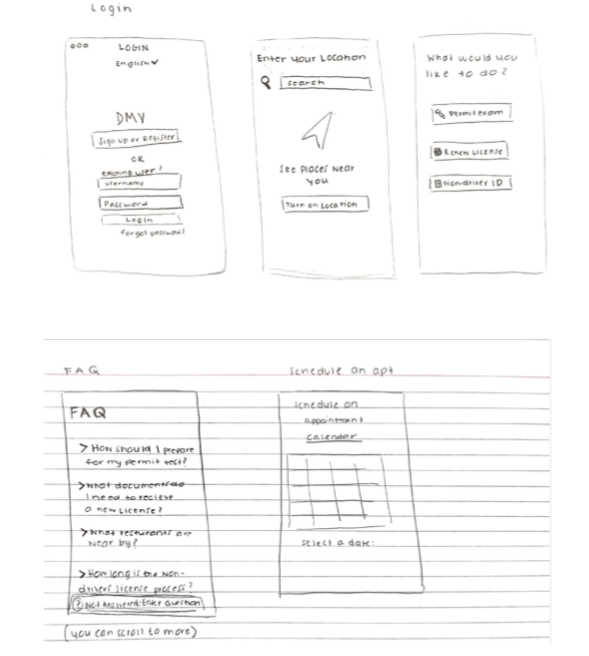 Login
ooo LOGIN
English
DMV
Sign up or Register
OR
Existing user?
Username
Password
Login
Forgot password?
Enter Your Location
search
See Places Near
You
Turn on Location
What would you
like to do?
Permit exam
Renew License
Non-driver ID
FAQ
FAQ
> How should I prepare
for my permit test?
> What documents do
I need to recieve
a new License?
> What resturants are
Near by?
> How long is the Non-
drivers license process?
? Not Answered: Enter Question
(you can scroll to more)
Schedule an apt
Schedule an
appointment
calendar
Select a date: